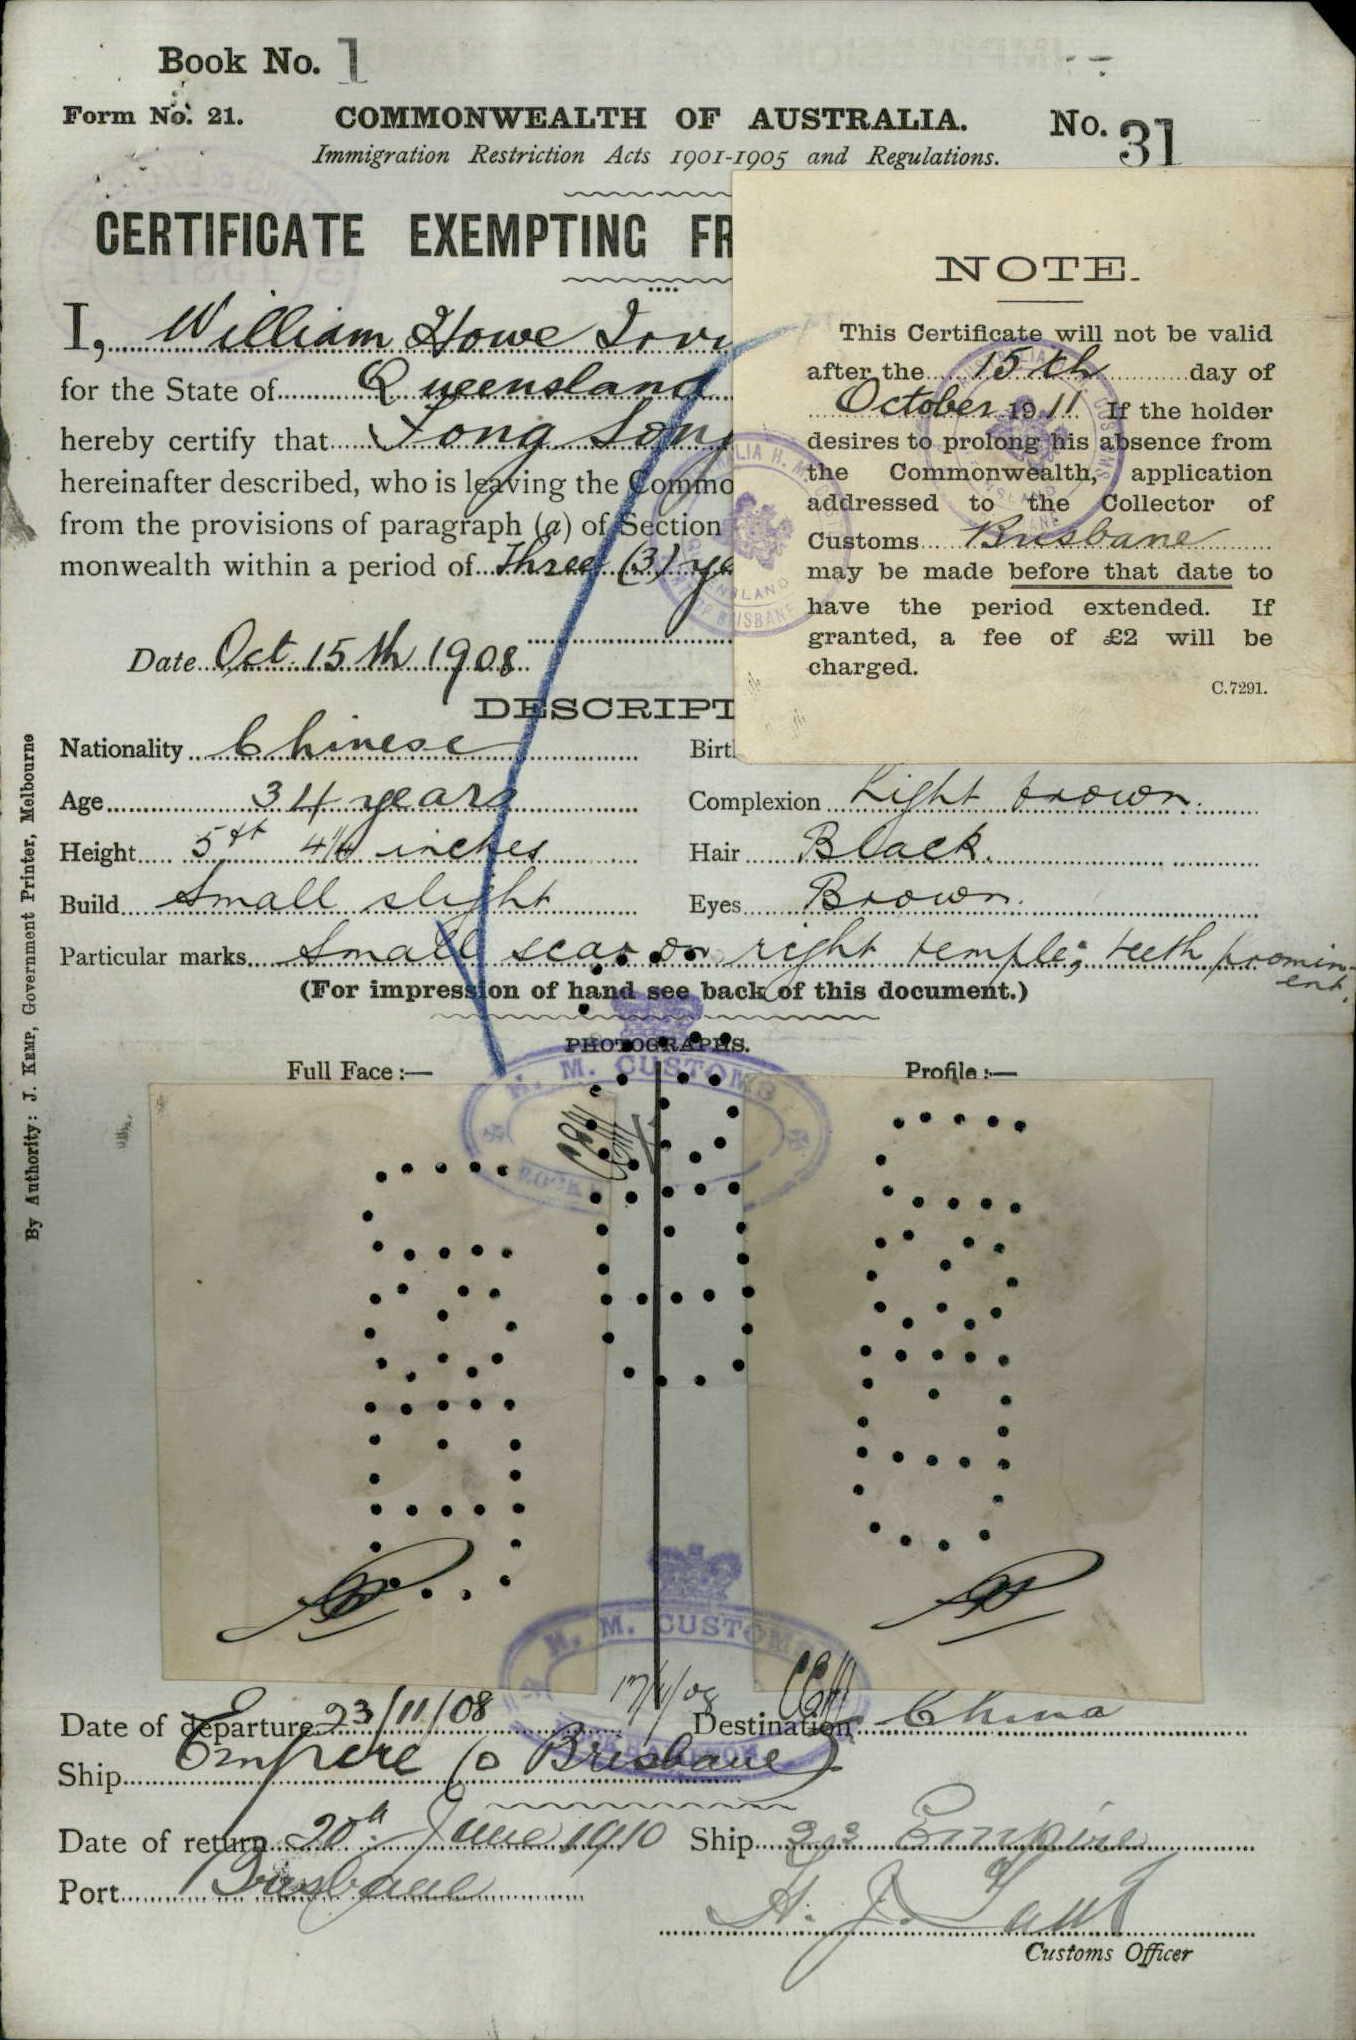 Book No. 1
Form No. 21.
COMMONWEALTH OF AUSTRALIA.
No. 31
Immigration Restriction Acts 1901-1905 and Regulations.
CERTIFICATE EXEMPTING FR
I, William Howe
for the State of Queensland
hereby certify that Fong Song
hereinafter described, who is leaving the Commo
from the provisions of paragraph (a) of Section
monwealth within a period of Three (3) ye
Date Oct. 15th 1908
NOTE.
This Certificate will not be valid
after the 15th day of
October 1911 If the holder
desires to prolong his absence from
the Commonwealth, application
addressed to the Collector of
Customs Brisbane
may be made before that date to
have the period extended. If
granted, a fee of £2 will be
charged.
C.7291.
DESCRIPT
Nationality Chinese
Birt
Age 34 years
Complexion Light brown.
Height 5ft inches
Hair Black.
Build Small slight
Eyes Brown.
Particular marks Small scar on right temple; teeth promin-
ent.
(For impression of hand see back of this document.)
PHOTOGRAPHS.
Full Face:—
Profile:—
H. M. CUSTOMS
H. M. CUSTOMS
Date of departure 23/11/08
Destination China
Ship Empire (o Brisbane)
Date of return 20th June 1910
Ship Empire
Port Brisbane
Customs Officer
By Authority: J. KEMP, Government Printer, Melbourne